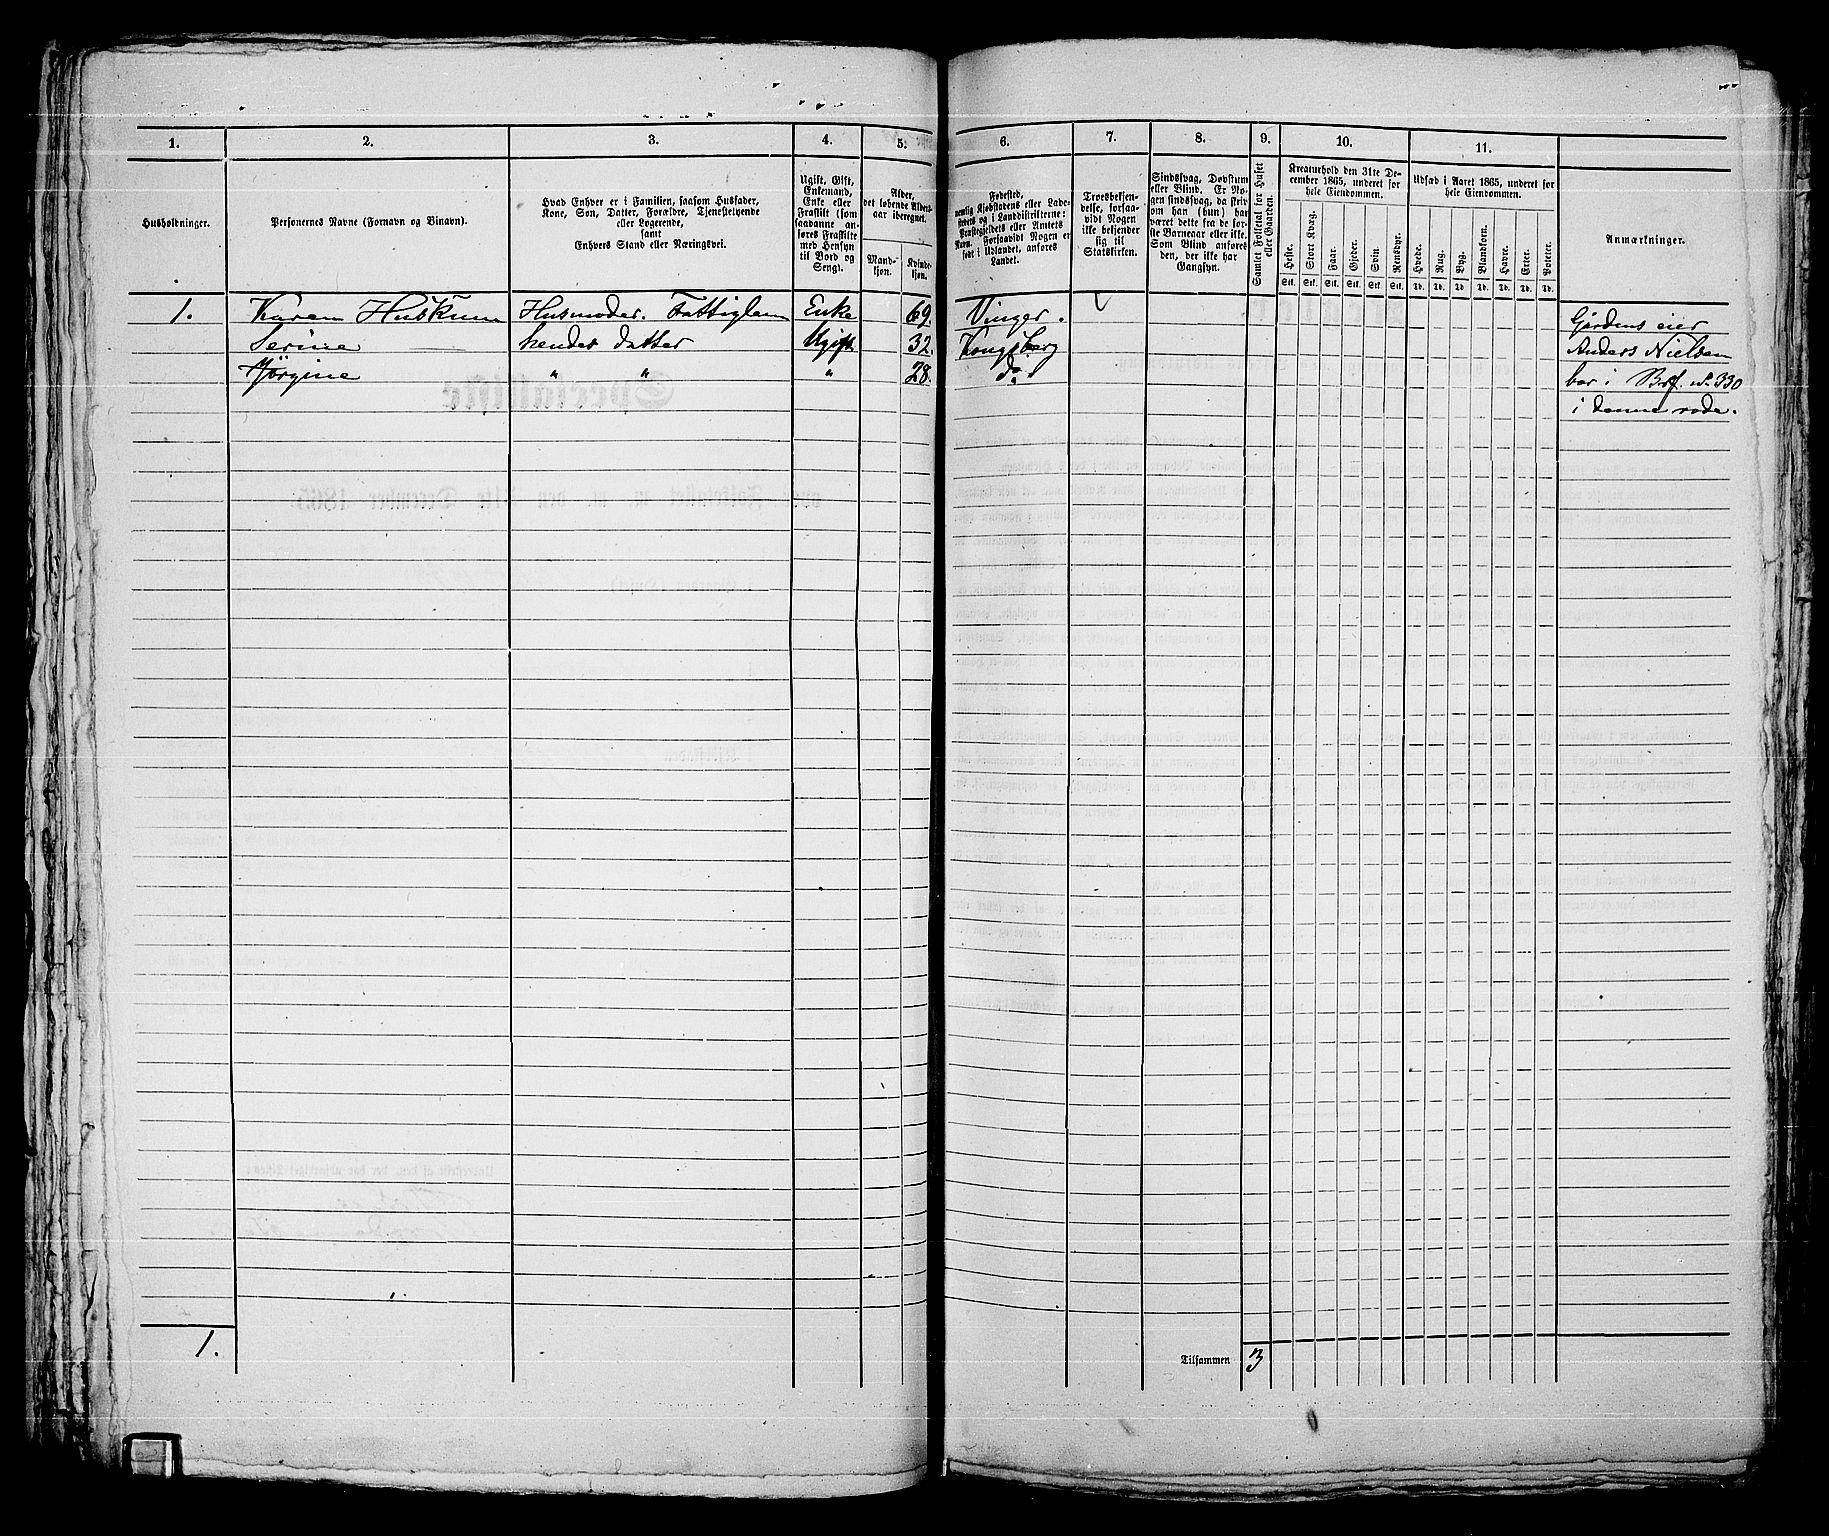 1. 2. 3. 4. 5. 6. 7. 8. 9. 10. 11.
Husholdninger.
Personernes Navne (Fornavn og Binavn).
Hvad Enhver er i Familien, saasom Husfader,
Kone, Søn, Datter, Forældre, Tjenestetyende
eller Logerende,
samt
Enhvers Stand eller Næringsvei.
Ugift, Gift,
Enkemand,
Enke eller
Fraskilt (som
saadanne an-
føres Fraskilte
med Hensyn
til Bord og
Seng).
Alder,
det løbende Alders-
aar iberegnet.
Mand-
kjøn.
Kvinde-
kjøn.
Fødested,
nemlig Kjøbstadens eller Lade-
stedets og i Landdistrikterne:
Præstegjeldets eller Amtets
Navn. Forsaavidt Nogen er
født i Udlandet, anføres
Landet.
Troesbekjen-
delse, forsaa-
vidt Nogen
ikke bekjender
sig til
Statskirken.
Sindssvag, Døvstum
eller Blind. Er No-
gen sindssvag, da skriv
om han (hun) har
været dette fra de før-
ste Barneaar eller ikke.
Som Blind anføres
den, der ikke har
Gangsyn.
Samlet Folketal for Huset
eller Gaarden.
Kreaturhold den 31te De-
cember 1865, underet for
hele Eiendommen.
Heste. Stort Kvæg. Faar. Gjeder. Svin. Rensdyr.
Stk. Stk. Stk. Stk. Stk. Stk.
Udsæd i Aaret 1865, underet for
hele Eiendommen.
Hvede. Rug. Byg. Blandkorn. Havre. Erter. Poteter.
Td. Td. Td. Td. Td. Td. Td.
Anmærkninger.
1. Karen Huskum Husmoder. Fattiglem Enke 69. Vinger.
Serine hendes datter Ugift 32. Kongsberg
Jørgine " " " 28. do
Gårdens eier
Anders Nielsen
bor i Brf. No. 330
i denne rode.
1.
Tilsammen 3